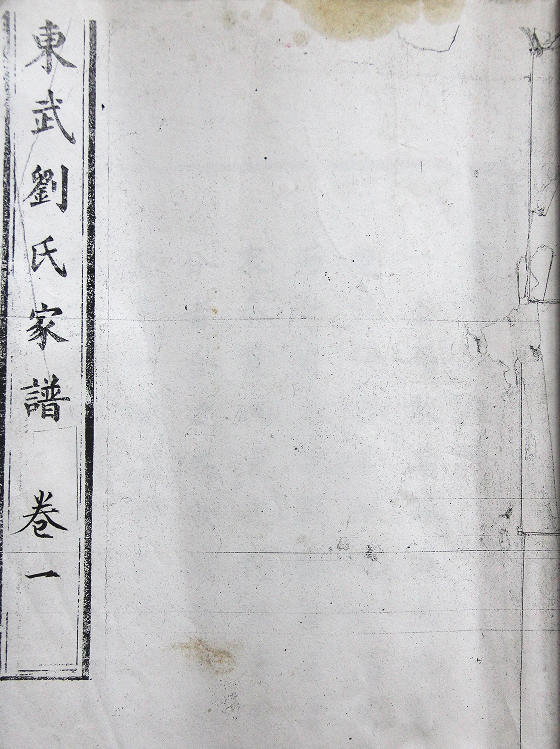 東武劉氏家譜 卷一